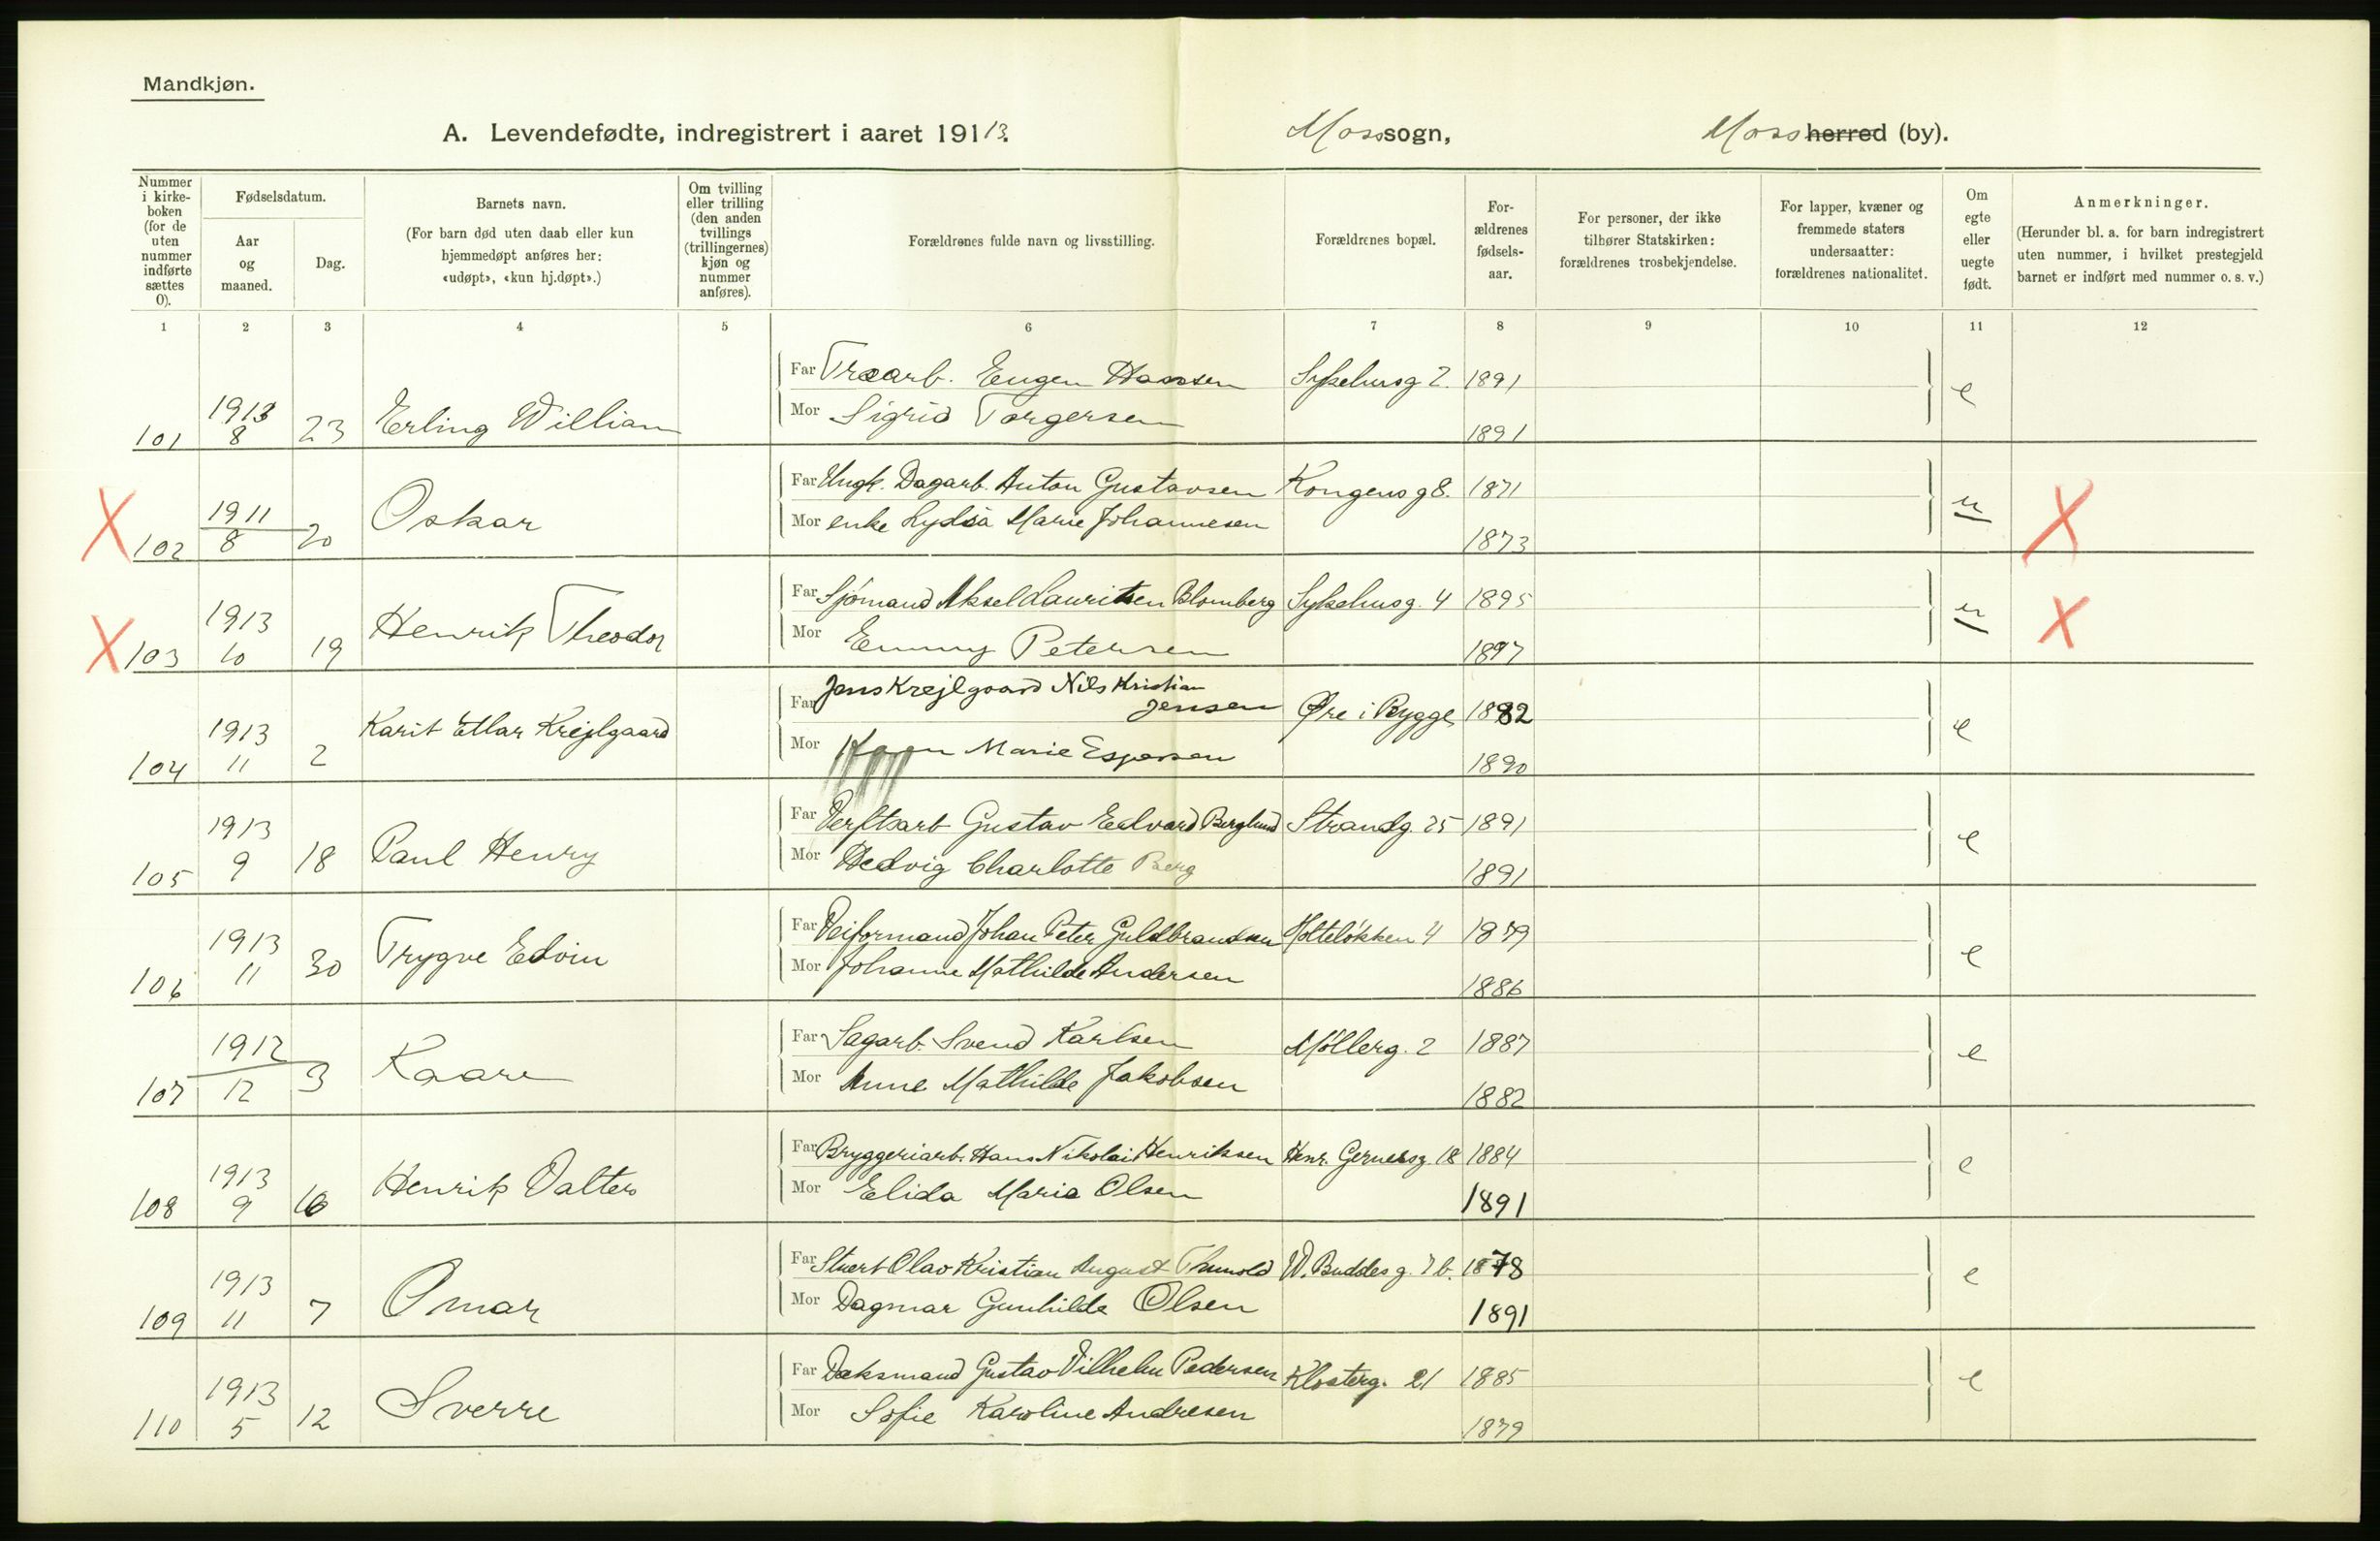 Mandkjøn.
A. Levendefødte, indregistrert i aaret 19113. Moss sogn, Moss herred (by).
Nummer i kirke-boken (for de uten nummer indførte sættes 0).
Fødselsdatum.
Aar og maaned.
Dag.
Barnets navn.
(For barn død uten daab eller kun hjemmedøpt anføres her: «udøpt», «kun hj.døpt».)
Om tvilling eller trilling (den anden tvillings (trillingernes) kjøn og nummer anføres).
Forældrenes fulde navn og livsstilling.
Forældrenes bopæl.
For-ældrenes fødsels-aar.
For personer, der ikke tilhører Statskirken: forældrenes trosbekjendelse.
For lapper, kvæner og fremmede staters undersaatter: forældrenes nationalitet.
Om egte eller uegte født.
Anmerkninger.
(Herunder bl. a. for barn indregistrert uten nummer, i hvilket prestegjeld barnet er indført med nummer o. s. v.)
1 2 3 4 5 6 7 8 9 10 11 12
Far Træarb. Eugen Hansen Sykehusg 2. 1891
101 1913 8 23 Erling William e
Mor Sigrid Torgersen 1891
Far Ungk. Dagarb. Anton Gustavsen Kongens g 8. 1871
X 102 1911 8 20 Oskar u X
Mor enke Lydia Marie Johannesen 1873
Far Sjømand Aksel Lauritsen Blomberg Sykehusg. 4 1895
X 103 1913 10 19 Henrik Theodor u X
Mor Emmy Petersen 1897
Far Jens Krejlgaard Nils Kristian Jensen Øre i Rygge 1882
104 1913 11 2 Karit Etlar Krejlgaard e
Mor Karen Marie Espersen 1890
Far Verftsarb Gustav Edvard Berglund Strandg. 25 1891
105 1913 9 18 Paul Henry e
Mor Hedvig Charlotte Berg 1891
Far Veiformand Johan Peter Guldbrandsen Holteløkken 4 1879
106 1913 11 30 Trygve Edvin e
Mor Johanne Mathilde Andersen 1886
Far Sagarb. Svend Karlsen Møllerg. 2 1887
107 1912 12 3 Kaare e
Mor Anne Mathilde Jakobsen 1882
Far Bryggeriarb. Hans Nikolai Henriksen Henr. Gernersg. 18 1884
108 1913 9 16 Henrik Valter e
Mor Elida Maria Olsen 1891
Far Stuert Olav Kristian August Thunold W. Buddes g. 7 b. 1878
109 1913 11 7 Omar e
Mor Dagmar Gunhilde Olsen 1891
Far Dæksmand Gustav Vilhelm Pedersen Klosterg. 21 1885
110 1913 5 12 Sverre e
Mor Sofie Karoline Andresen 1879